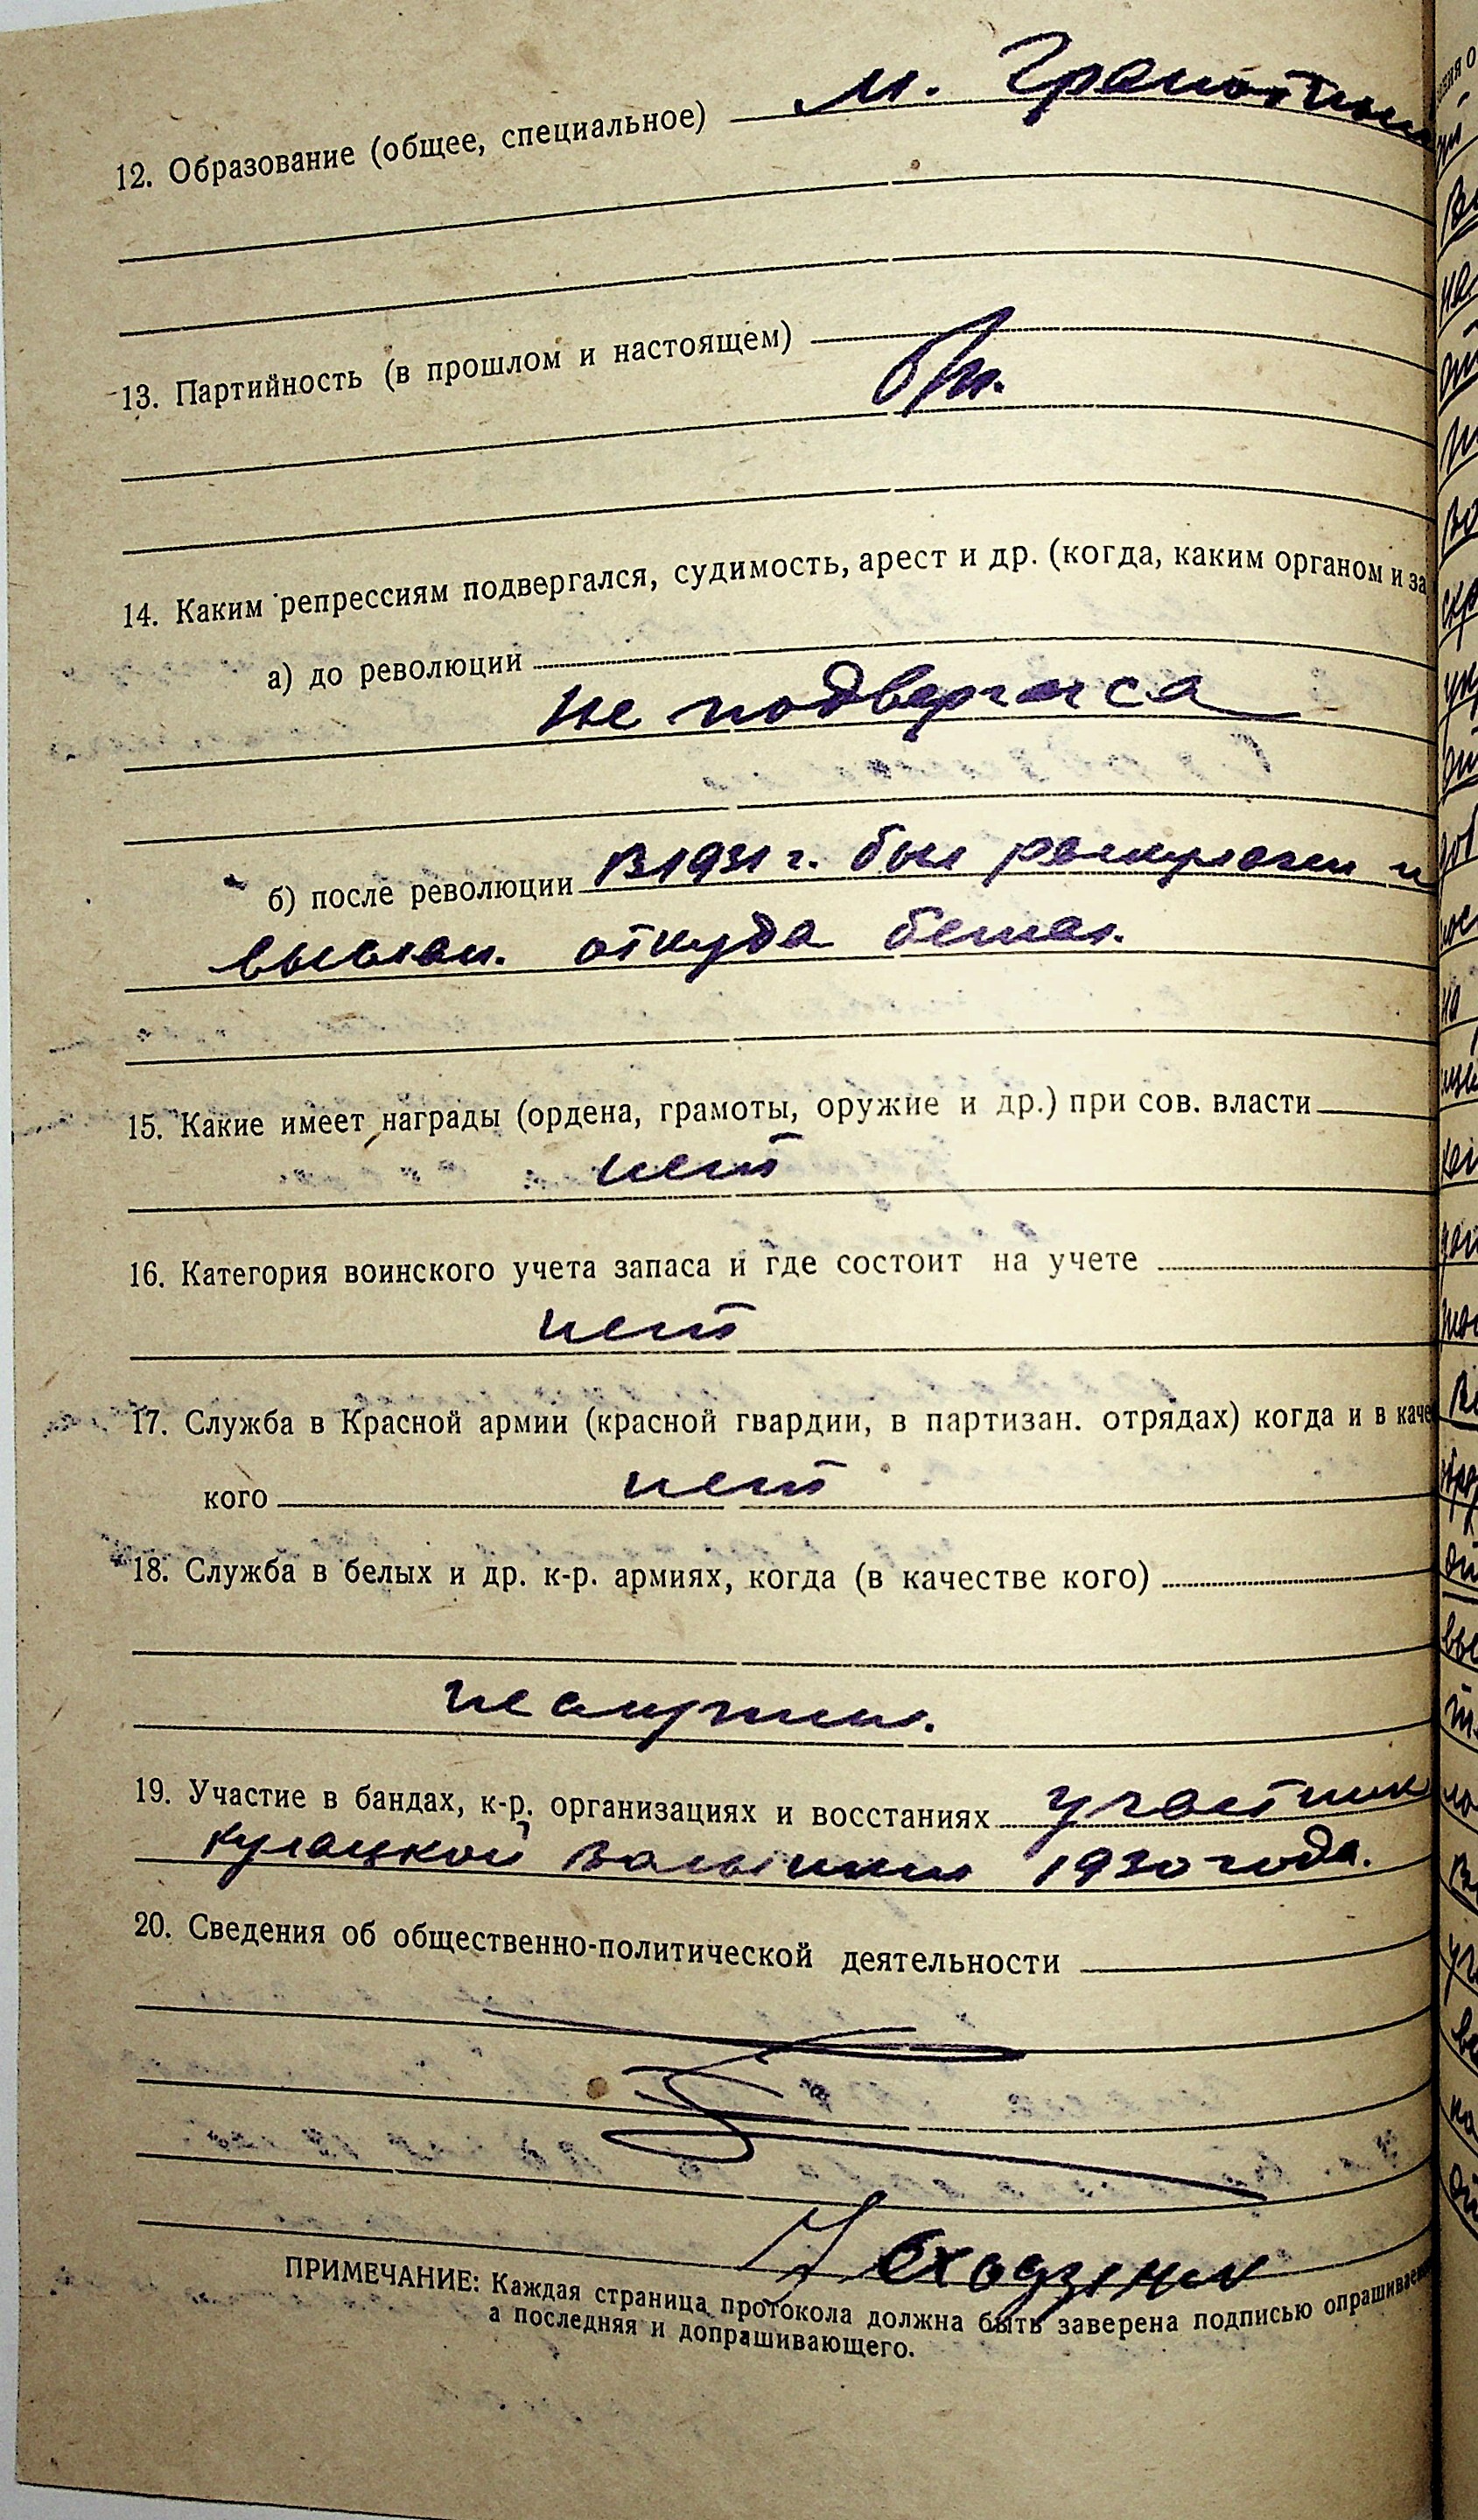 12. Образование (общее, специальное) м. Грамотный
13. Партийность (в прошлом и настоящем)
б/п.
14. Каким репрессиям подвергался, судимость, арест и др. (когда, каким органом и за
а) до революции
не подвергался
б) после революции В 1931 г. был раскулачен и
выслан. откуда бежал.
15. Какие имеет награды (ордена, грамоты, оружие и др.) при сов. власти
нет
16. Категория воинского учета запаса и где состоит на учете
нет
17. Служба в Красной армии (красной гвардии, в партизан. отрядах) когда и в каче
кого нет
18. Служба в белых и др. к-р. армиях, когда (в качестве кого)
не служил.
19. Участие в бандах, к-р. организациях и восстаниях участник
кулацкой волынки 1930 года.
20. Сведения об общественно-политической деятельности
ПРИМЕЧАНИЕ: Каждая страница протокола должна быть заверена подписью опрашиваем
а последняя и допрашивающего.